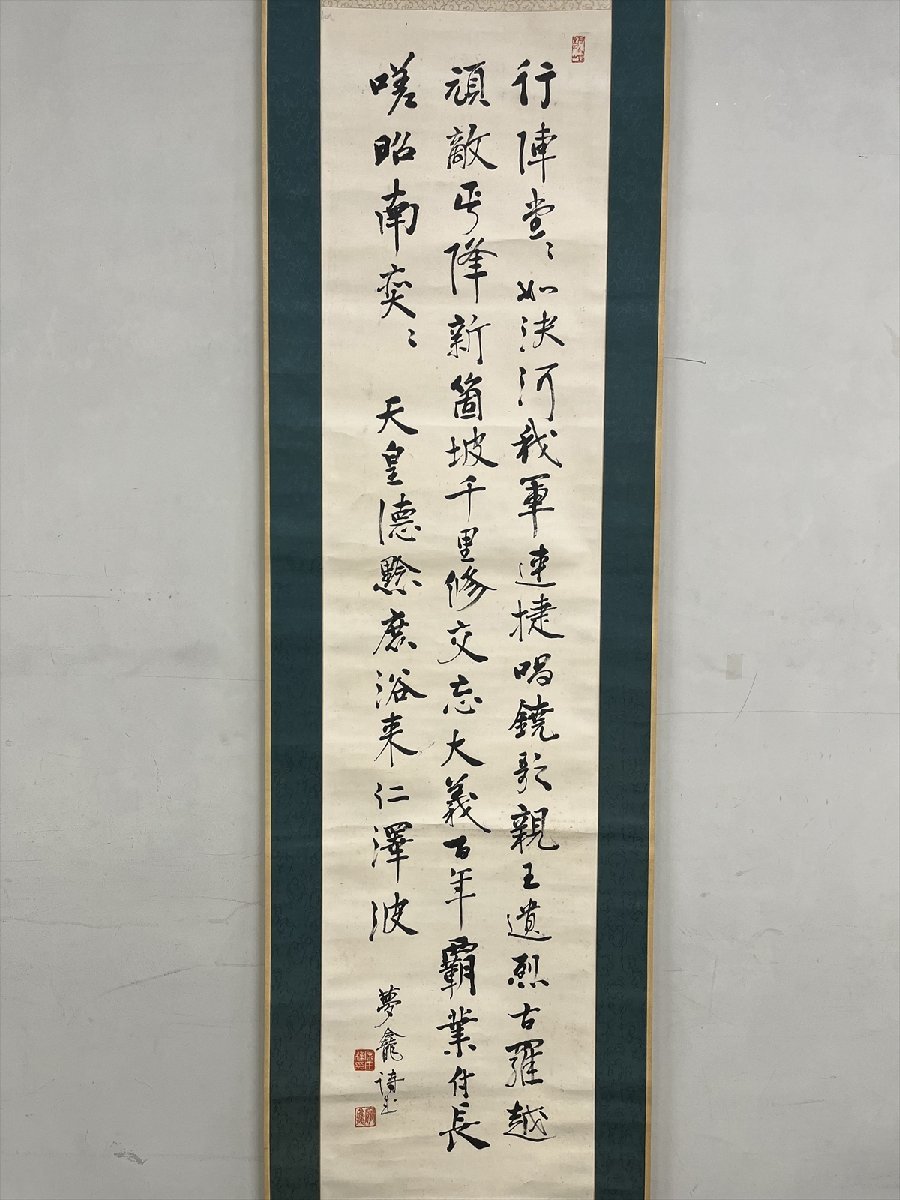 行陣堂〻如決河我軍連捷唱鐃歌親王遺烈古羅越
頑敵丐降新箇坡千里修交忘大義百年霸業付長
嗟昭南奕〻天皇德黔庶浴来仁澤波
夢龕